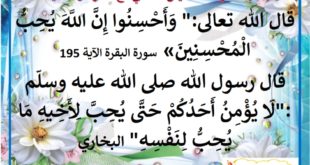 قال الله تعالى:" وَأَحْسِنُوا إِنَّ اللَّهَ يُحِبُّ
الْمُحْسِنِينَ» سورة البقرة الآية 195
قال رسول الله صلى الله عليه وسلّم
:"لَا يُؤْمِنُ أَحَدُكُمْ حَتَّى يُحِبَّ لِأَخِيهِ مَا
يُحِبُّ لِنَفْسِهِ" البخاري